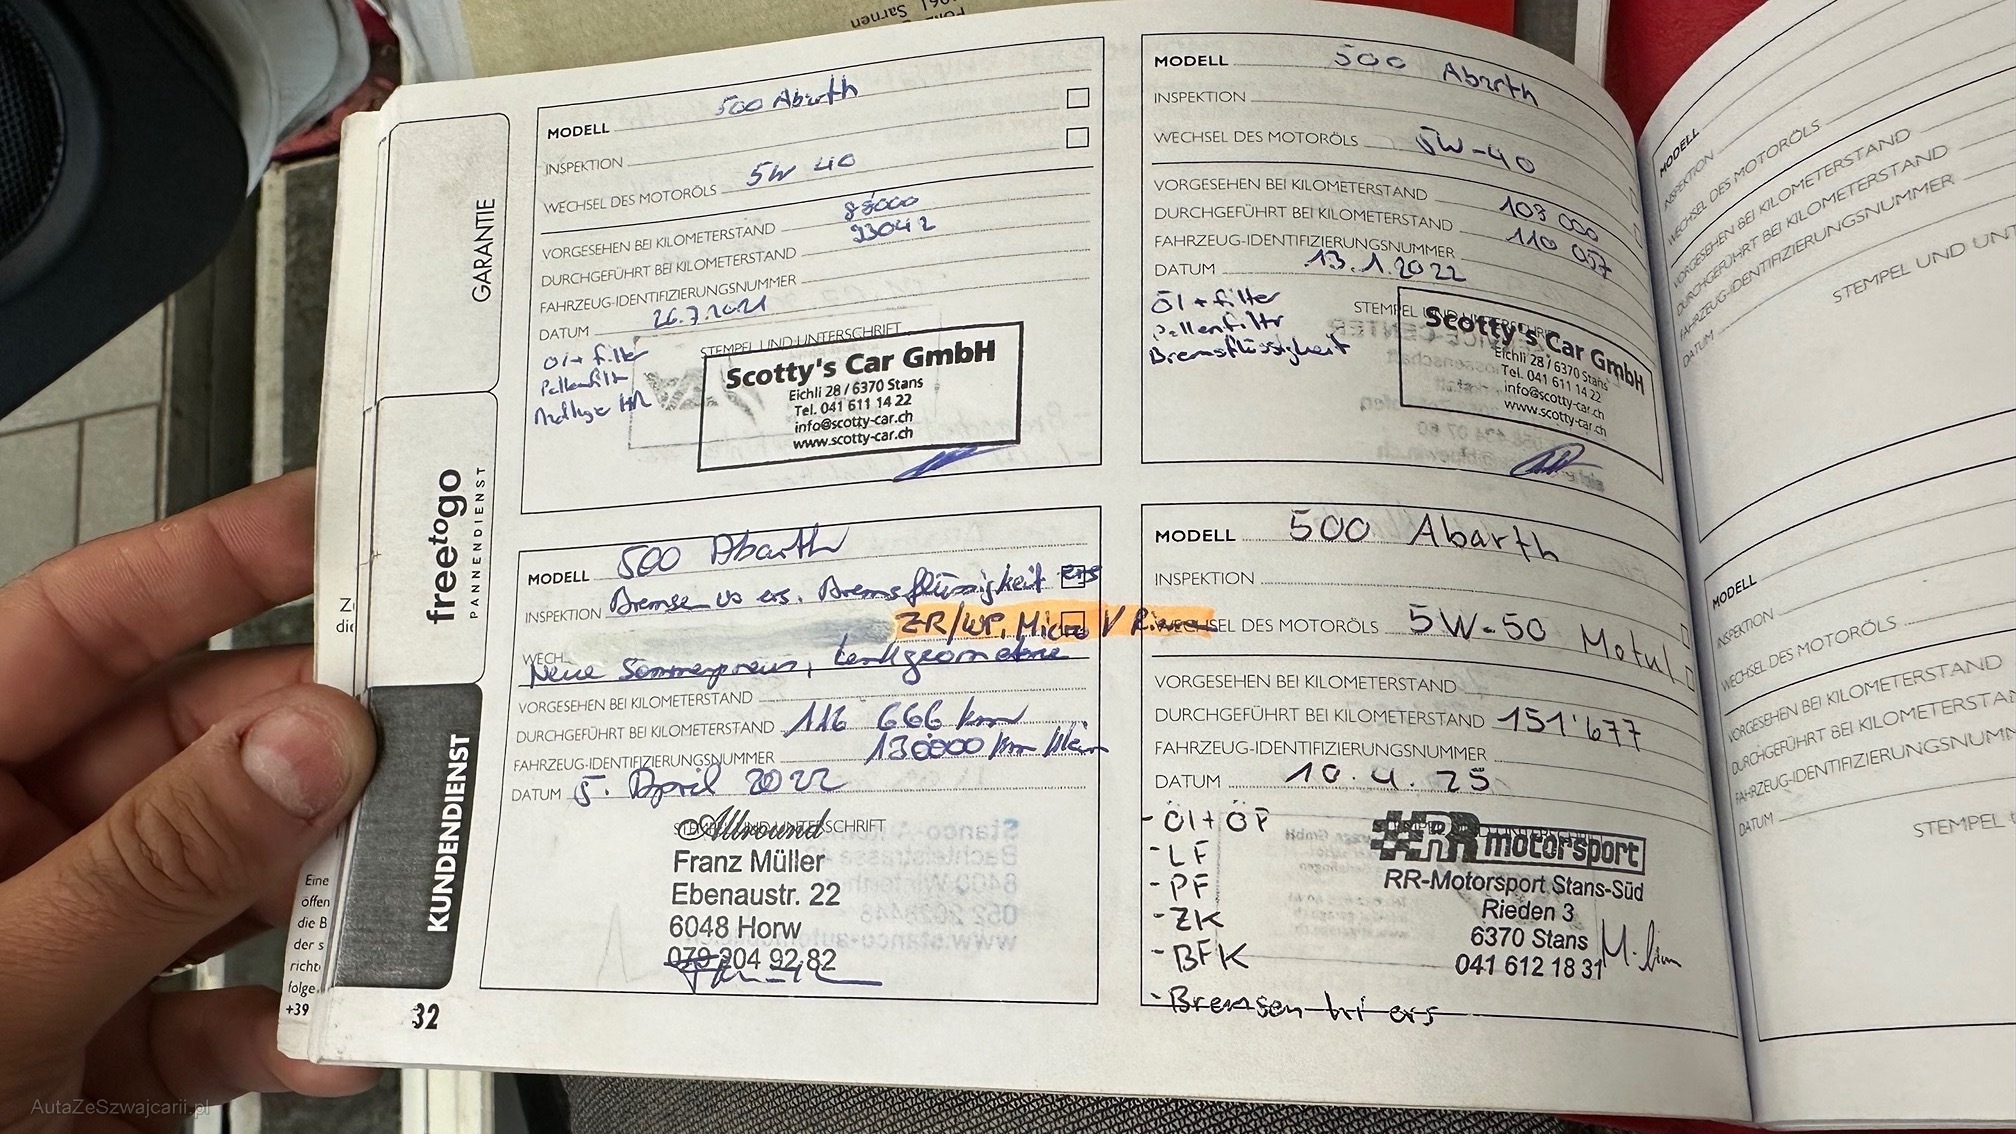 Sarnen
GARANTIE
freetogo
PANNENDIENST
KUNDENDIENST
32
Eine
öffen
die B
der s
richt
folge
+39
MODELL 500 Abarth
INSPEKTION
WECHSEL DES MOTORÖLS 5W 40
VORGESEHEN BEI KILOMETERSTAND 88000
DURCHGEFÜHRT BEI KILOMETERSTAND 93042
FAHRZEUG-IDENTIFIZIERUNGSNUMMER
DATUM 26.7.2021
STEMPEL UND UNTERSCHRIFT
Öl + filter
Pollenfilter
Scotty's Car GmbH
Eichli 28 / 6370 Stans
Tel. 041 611 14 22
info@scotty-car.ch
www.scotty-car.ch
MODELL 500 Abarth
INSPEKTION
WECHSEL DES MOTORÖLS 5W-40
VORGESEHEN BEI KILOMETERSTAND 103 000
DURCHGEFÜHRT BEI KILOMETERSTAND 110 057
FAHRZEUG-IDENTIFIZIERUNGSNUMMER
DATUM 13.1.2022
STEMPEL UND UNTERSCHRIFT
Öl + filter
Pollenfiltr
Bremsflüssigkeit
Scotty's Car GmbH
Eichli 28 / 6370 Stans
Tel. 041 611 14 22
info@scotty-car.ch
www.scotty-car.ch
MODELL 500 Abarth
INSPEKTION Bremsen vo ers. Bremsflüssigkeit ers
ZR/WP, Micro V Riemen
WECH
Neue Sommerpneus, Lenkgeometrie
VORGESEHEN BEI KILOMETERSTAND
DURCHGEFÜHRT BEI KILOMETERSTAND 116 666 km
FAHRZEUG-IDENTIFIZIERUNGSNUMMER 130000 km
DATUM 5. April 2022
STEMPEL UND UNTERSCHRIFT
Allround
Franz Müller
Ebenaustr. 22
6048 Horw
079 204 92 82
MODELL 500 Abarth
INSPEKTION
WECHSEL DES MOTORÖLS 5W-50 Motul
VORGESEHEN BEI KILOMETERSTAND
DURCHGEFÜHRT BEI KILOMETERSTAND 151'677
FAHRZEUG-IDENTIFIZIERUNGSNUMMER
DATUM 10.4.25
- Öl + ÖF
- LF
- PF
- ZK
- BFK
- Bremsen hi ers
RR motorsport
RR-Motorsport Stans-Süd
Rieden 3
6370 Stans
041 612 18 31
MODELL
INSPEKTION
WECHSEL DES MOTORÖLS
VORGESEHEN BEI KILOMETERSTAND
DURCHGEFÜHRT BEI KILOMETERSTAND
FAHRZEUG-IDENTIFIZIERUNGSNUMMER
DATUM
STEMPEL UND UNT
MODELL
INSPEKTION
WECHSEL DES MOTORÖLS
VORGESEHEN BEI KILOMETERSTAND
DURCHGEFÜHRT BEI KILOMETERSTA
FAHRZEUG-IDENTIFIZIERUNGSNUM
DATUM
STEMPEL
AutaZeSzwajcarii.pl